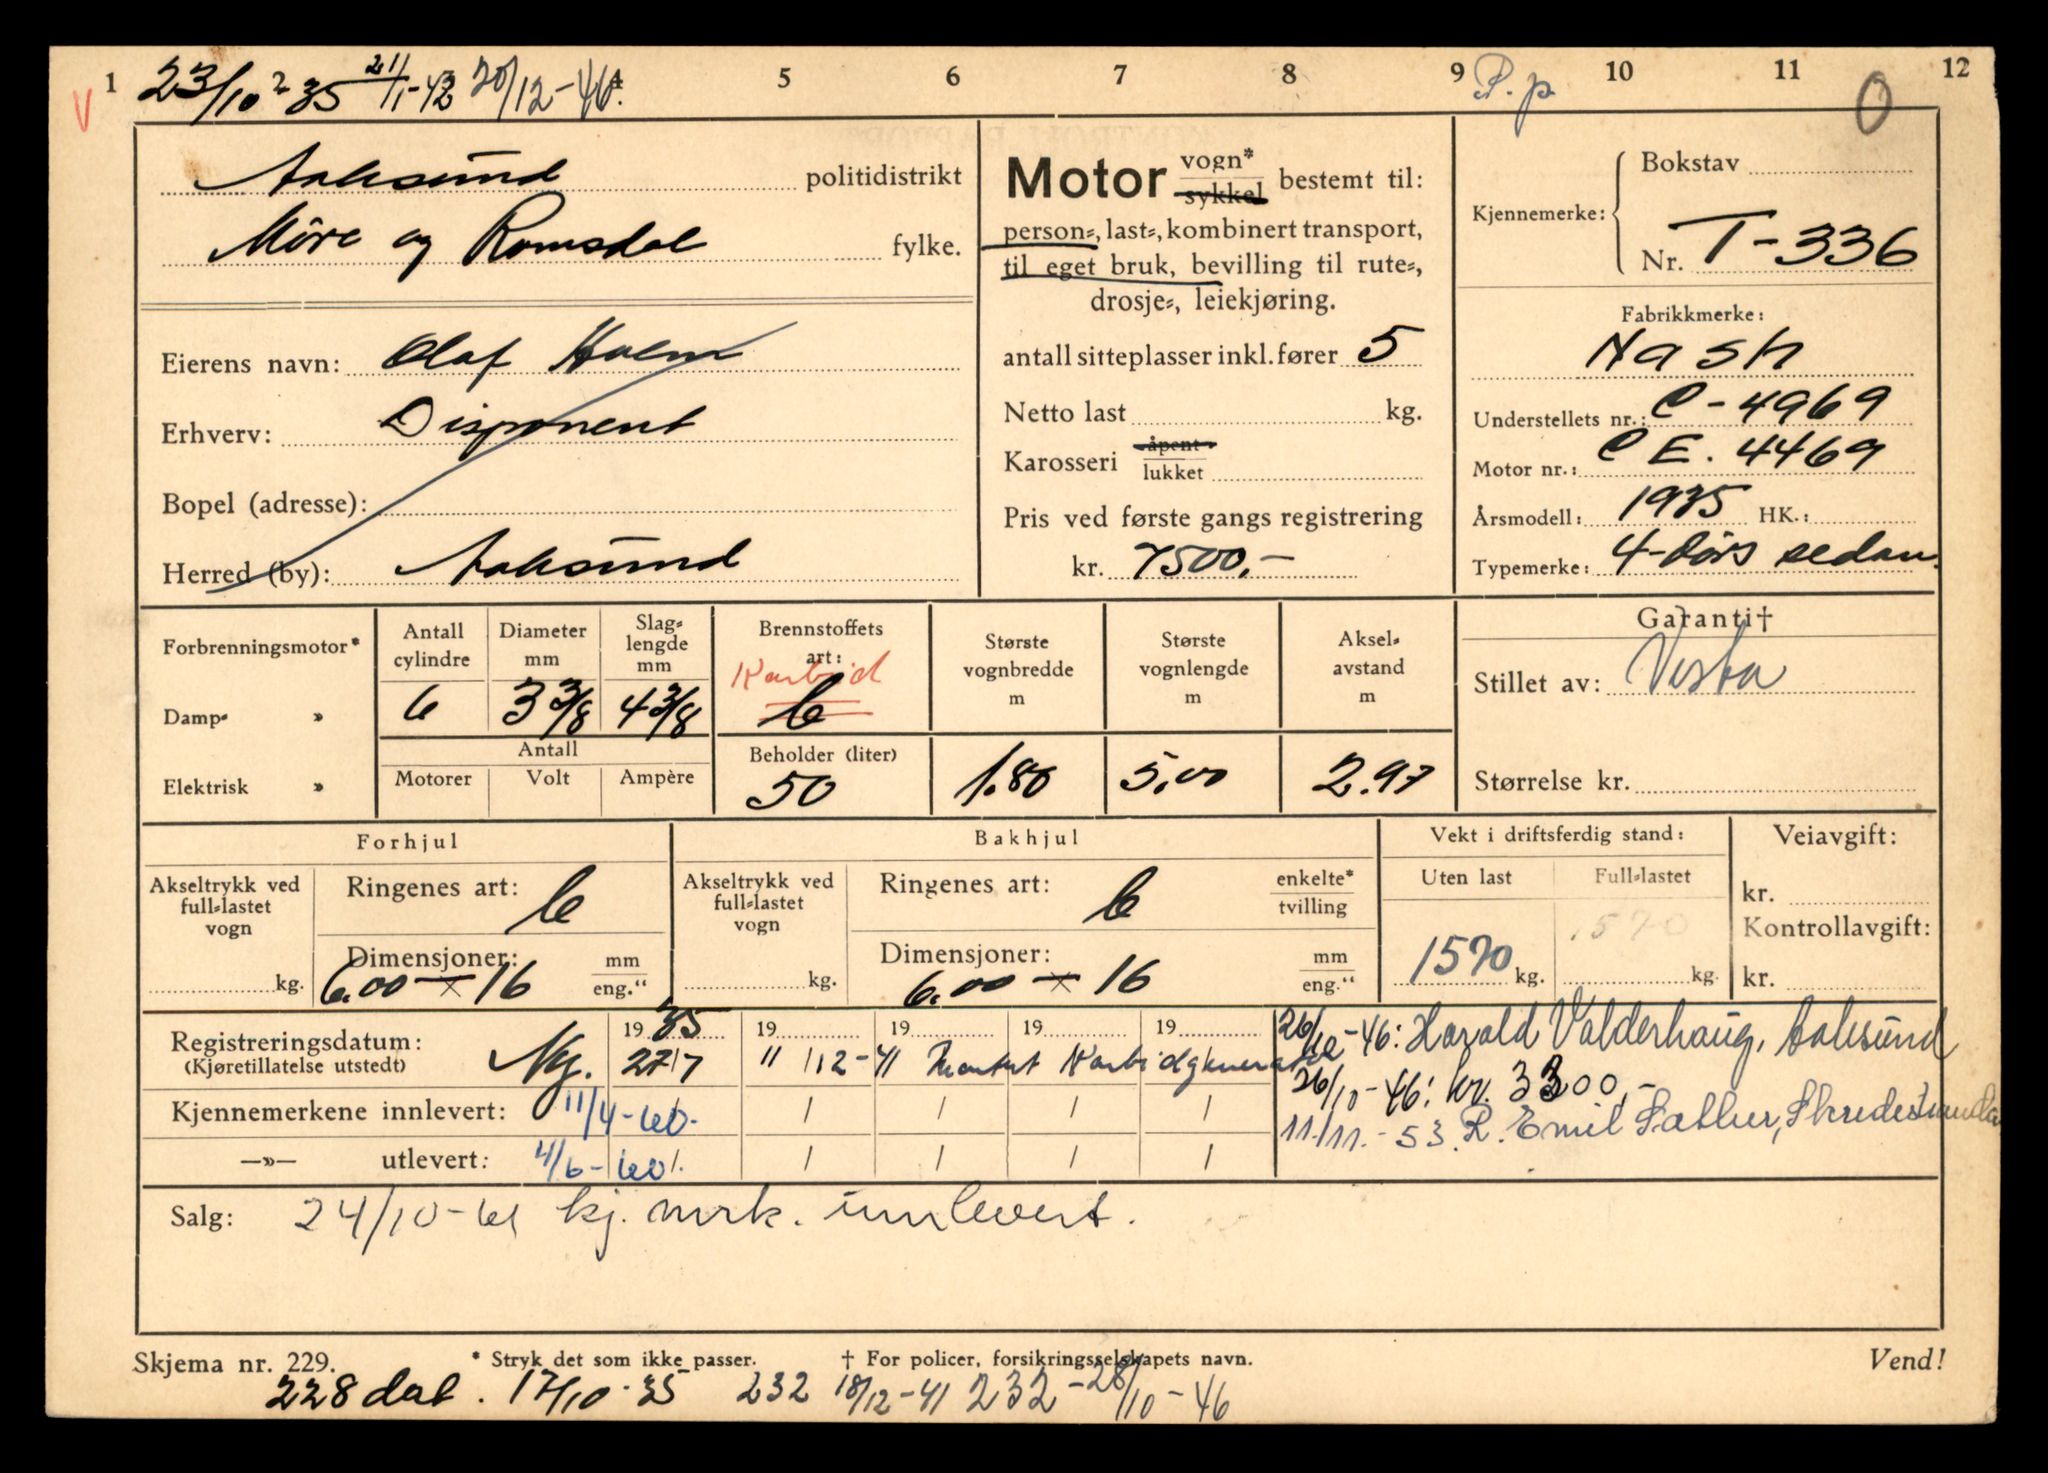 1 23/10-35 21/1-42 20/12-46. 5 6 7 8 9 P.p 10 11 12
V
0
Aalesund politidistrikt
Møre og Romsdal fylke.
Eierens navn: Olaf Holm
Erhverv: Disponent
Bopel (adresse):
Herred (by): Aalesund
Motor vogn* sykkel bestemt til:
person-, last-, kombinert transport,
til eget bruk, bevilling til rute-,
drosje-, leiekjøring.
antall sitteplasser inkl. fører 5
Netto last kg.
Karosseri åpent lukket
Pris ved første gangs registrering
kr. 7500,-
Kjennemerke: Bokstav
Nr. T-336
Fabrikkmerke:
Nash
Understellets nr.: C-4969
Motor nr.: C E. 4469
Årsmodell: 1935 HK.:
Typemerke: 4-dørs sedan.
Forbrenningsmotor*
Damp- »
Elektrisk »
Antall cylindre 6
Diameter mm 3 3/8
Slag-lengde mm 4 3/8
Antall
Motorer Volt Ampère
Brennstoffets art: Karbid
b
Beholder (liter) 50
Største vognbredde m 1.80
Største vognlengde m 5,00
Aksel-avstand m 2.97
Garanti†
Stillet av: Vesta
Størrelse kr.
Forhjul
Akseltrykk ved full-lastet vogn kg.
Ringenes art: b
Dimensjoner: 6.00 x 16 mm eng."
Bakhjul
Akseltrykk ved full-lastet vogn kg.
Ringenes art: b enkelte* tvilling
Dimensjoner: 6.00 x 16 mm eng."
Vekt i driftsferdig stand:
Uten last Full-lastet
1570 kg. 1570 kg.
Veiavgift:
kr.
Kontrollavgift:
kr.
Registreringsdatum: Ny. 1935 19 19 19 19
(Kjøretillatelse utstedt) 27/7 11/12-41 Montert Karbidgenerator
Kjennemerkene innlevert: 11/4-60.
—»— utlevert: 4/6-60.
26/10-46: Harald Valderhaug, Aalesund
26/10-46: kr. 3300,-
11/11.-53. R. Emil Sæther,
Salg: 24/10-61 kj. mrk. innlevert.
Skjema nr. 229. * Stryk det som ikke passer. † For policer, forsikringsselskapets navn. Vend!
228 dat. 17/10-35 232 18/12-41 232-28/10-46